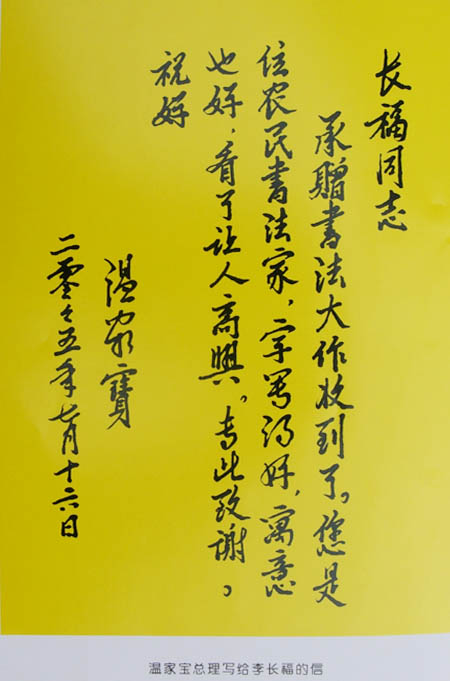 长福同志
承赠书法大作收到了。您是
位农民书法家，字写得好，寓意
也好，看了让人高興。专此致谢。
祝好
温家寳
二零零五年七月十六日
温家宝总理写给李长福的信